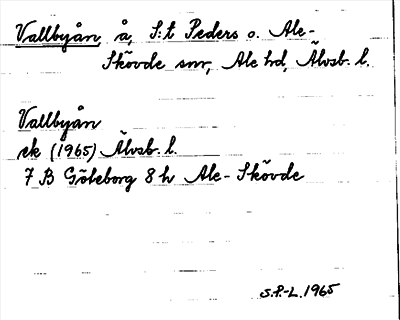 Vallbyån, å, S:t Peders o. Ale-
Skövde snr, Ale hd, Älvsb. l.
Vallbyån
ek (1965) Älvsb. l.
7 B Göteborg 8 h Ale-Skövde
S.P.-L. 1965